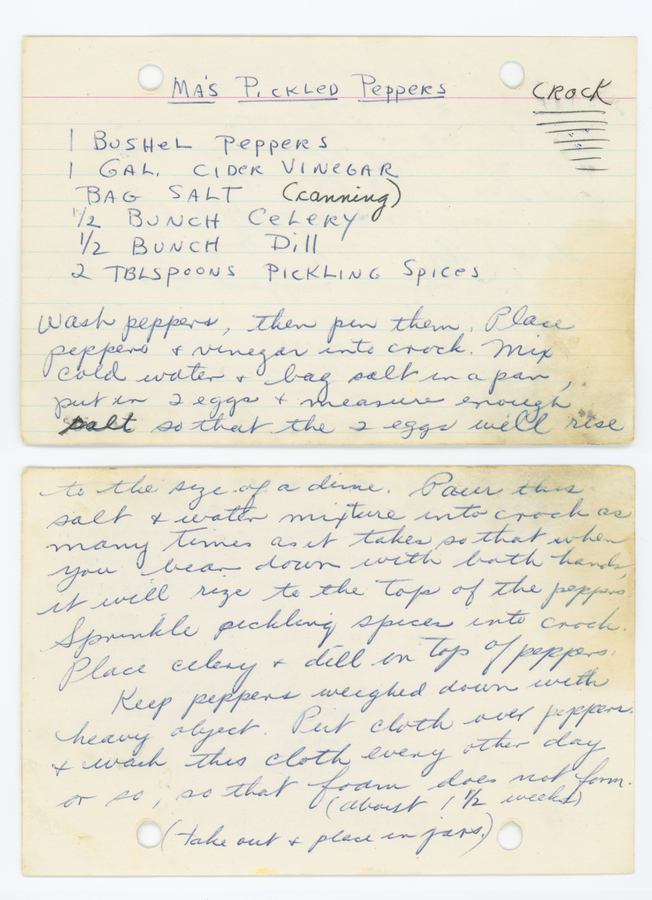 Ma's Pickled Peppers
CROCK
1 Bushel Peppers
1 Gal. Cider Vinegar
Bag Salt (canning)
1/2 Bunch Celery
1/2 Bunch Dill
2 Tblspoons Pickling Spices
Wash peppers, then pin them. Place
peppers & vinegar into crock. Mix
cold water & bag salt in a pan,
put in 2 eggs & measure enough
salt so that the 2 eggs will rise
to the size of a dime. Pour this
salt & water mixture into crock as
many times as it takes, so that when
you bear down with both hands,
it will rize to the top of the peppers.
Sprinkle pickling spices into crock.
Place celery & dill on top of peppers.
Keep peppers weighed down with
heavy object. Put cloth over peppers.
& wash this cloth every other day
or so, so that foam does not form.
(about 1 1/2 weeks)
(take out & place in jars.)